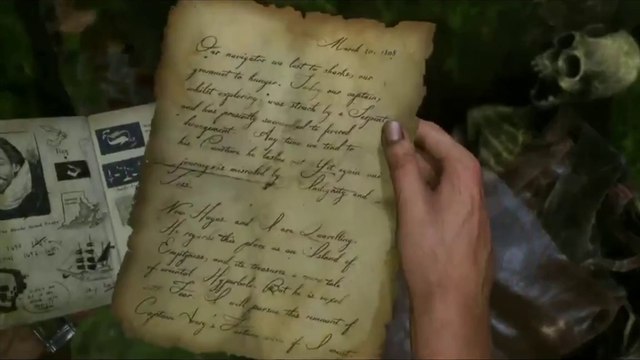 March 10, 1808
Our navigator we lost to sharks, our
gourmont to hunger. Today our captain,
whilst exploring, was struck by a Serpent
and has presently succumbed to fevered
derangement. Any time we tend to
his Condition he lashes out. Yet again our
journey is marred by Indignity and
Loss.
Now Hayes and I are Quarrelling.
He regards this place as an Island of
Emptiness, and its treasure a mere tale
of mental Hyperbole. But he is
Fear. I will pursue this remnant of
Captain Avery's Fortune even if I must
Flag